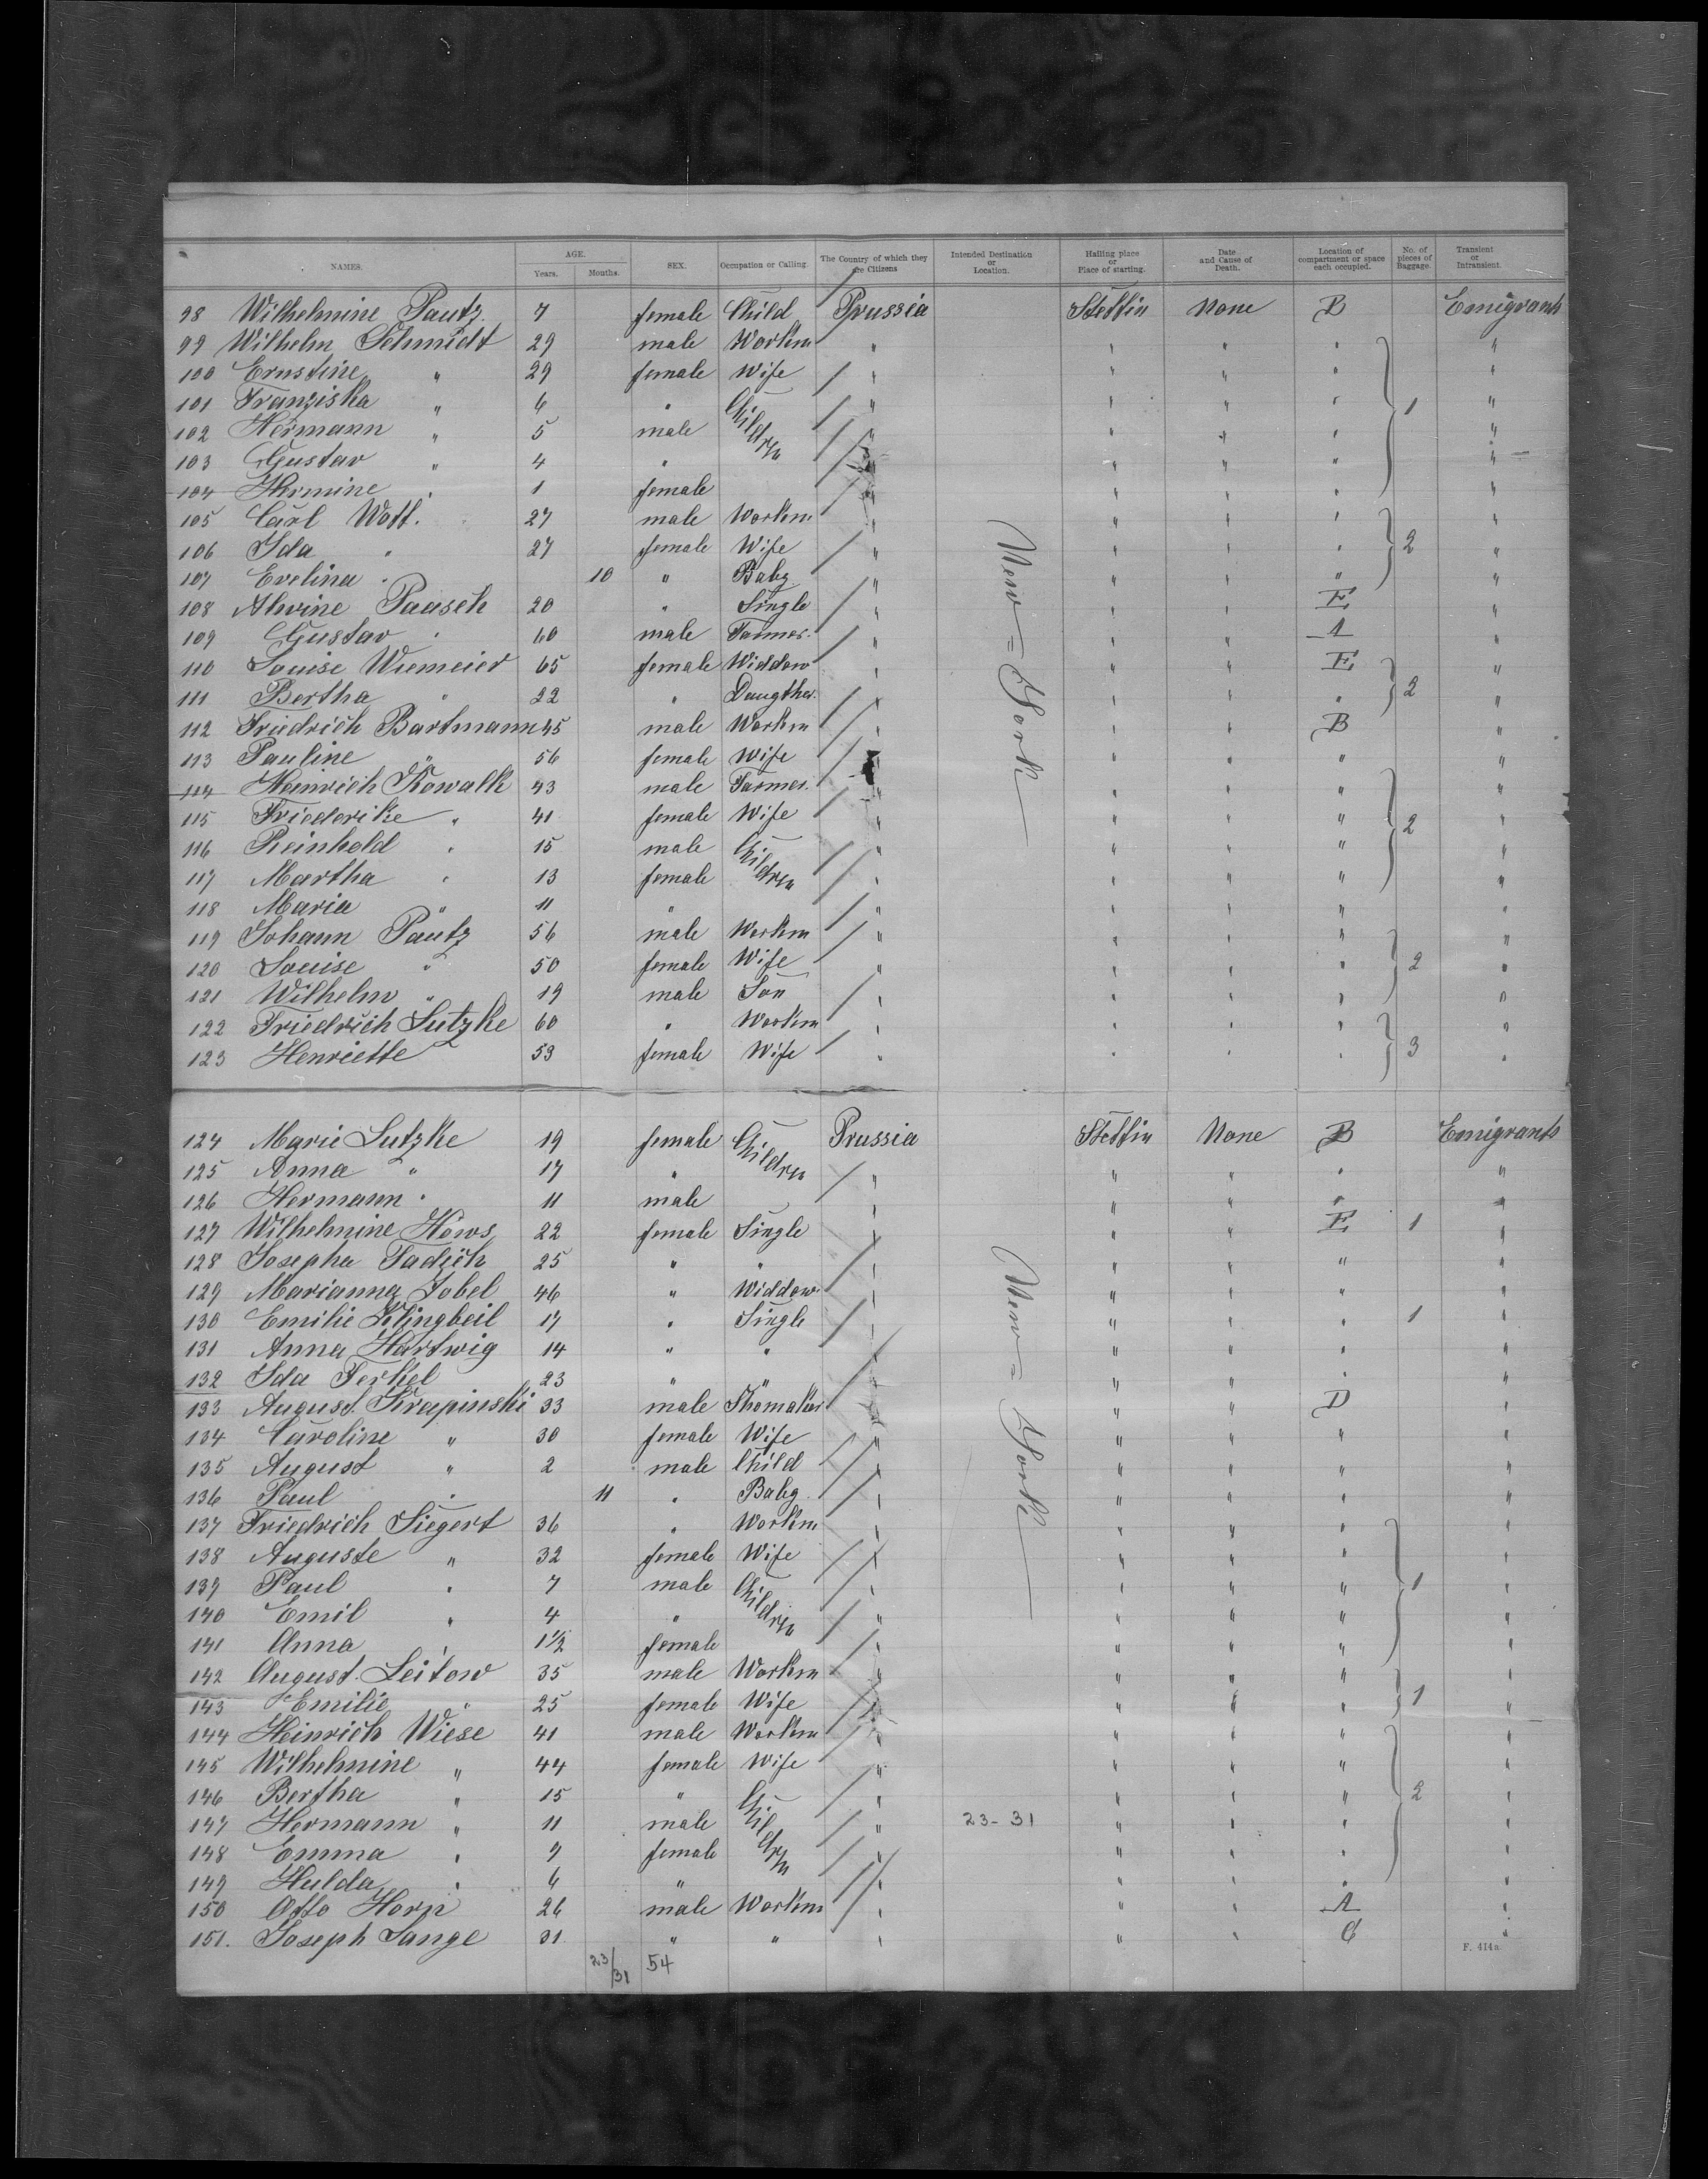 NAMES. AGE. Years. Months. SEX. Occupation or Calling. The Country of which they are Citizens Intended Destination or Location. Hailing place or Place of starting. Date and Cause of Death. Location of compartment or space each occupied. No. of pieces of Baggage. Transient or Intransient.
98 Wilhelmine Pautz. 7 female Child Prussia Stettin None B Emigrants
99 Wilhelm Schmidt 29 male Workm " " " " "
100 Ernstine " 29 female Wife " " " " "
101 Franziska " 6 " Children " " " " 1 "
102 Hermann " 5 male " " " " "
103 Gustav " 4 " " " " " "
104 Hermine " 1 female " " " " "
105 Carl Wolf. 27 male Workm " " " " "
106 Ida " 27 female Wife " " " " 2 "
107 Evelina " 10 " Baby " " " " "
108 Alwine Paasch 20 " Single " " " E "
109 Gustav " 60 male Farmer. " " " A "
110 Louise Wiemeier 65 female Widdow " " " E "
111 Bertha " 22 " Daugther. " " " " 2 "
112 Friedrich Bartmann 45 male Workm " " " B "
113 Pauline " 56 female Wife " " " " "
114 Heinrich Kowalk 43 male Farmer. " " " " "
115 Friederike " 41 female Wife " " " " 2 "
116 Reinhold " 15 male Children " " " " "
117 Martha " 13 female " " " " "
118 Maria " 11 " " " " " "
119 Johann Pautz 56 male Workm " " " " "
120 Louise " 50 female Wife " " " " 2 "
121 Wilhelm " 19 male Son " " " " "
122 Friedrich Lutzke 60 " Workm " " " " "
123 Henriette 53 female Wife " " " " 3 "
New=York
124 Marie Lutzke 19 female Children Prussia Stettin None B Emigrants
125 Anna " 17 " " " " " "
126 Hermann " 11 male " " " " "
127 Wilhelmine Höws 22 female Single " " " E 1 "
128 Josepha Tadich 25 " " " " " " "
129 Marianna Jobel 46 " Widdow " " " " "
130 Emilie Klingbeil 17 " Single " " " " 1 "
131 Anna Hartwig 14 " " " " " " "
132 Ida Ferkel 23 " " " " " " "
133 August. Krapinski 33 male Shomaker " " " D "
134 Caroline " 30 female Wife " " " " "
135 August " 2 male Child " " " " "
136 Paul " 11 " Baby " " " " "
137 Friedrich Siegert 36 " Workm " " " " "
138 Auguste " 32 female Wife " " " " "
139 Paul " 7 male Children " " " " 1 "
140 Emil " 4 " " " " " "
141 Anna " 1½ female " " " " "
142 August. Leitow 35 male Workm " " " " "
143 Emilie " 25 female Wife " " " " 1 "
144 Heinrich Wiese 41 male Workm " " " " "
145 Wilhelmine " 44 female Wife " " " " "
146 Bertha " 15 " Children " " " " 2 "
147 Hermann " 11 male " 23-31 " " " "
148 Emma " 9 female " " " " "
149 Hulda " 6 " " " " " "
150 Otto Horn 26 male Workm " " " A "
151. Joseph Lange 31 " " " " " C "
New=York
23/31 54
F. 414a